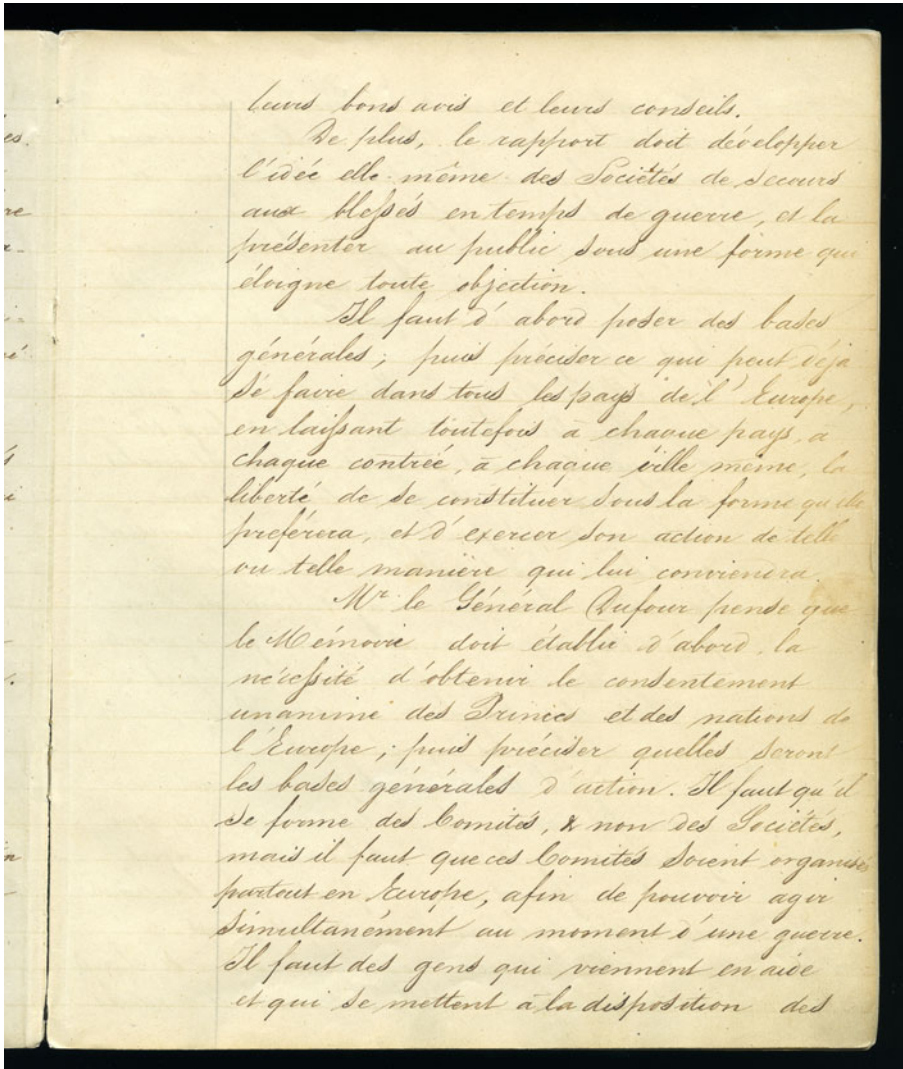 leurs bons avis et leurs conseils.
De plus, le rapport doit développer
l'idée elle-même des Sociétés de secours
aux blessés en temps de guerre, et la
présenter au public sous une forme qui
éloigne toute objection.
Il faut d'abord poser des bases
générales; puis préciser ce qui peut déja
se faire dans tous les pays de l'Europe,
en laissant toutefois à chaque pays, à
chaque contrée, à chaque ville même, la
liberté de se constituer sous la forme qu'elle
préférera, et d'exercer son action de telle
ou telle manière qui lui conviendra.
Mr. le Général Dufour pense que
le Mémoire doit établir d'abord, la
nécessité d'obtenir le consentement
unanime des Princes et des nations de
l'Europe; puis préciser quelles seront
les bases générales d'action. Il faut qu'il
se forme des Comités, & non des Sociétés,
mais il faut que ces Comités soient organisés
partout en Europe, afin de pouvoir agir
simultanément au moment d'une guerre.
Il faut des gens qui viennent en aide
et qui se mettent à la disposition des